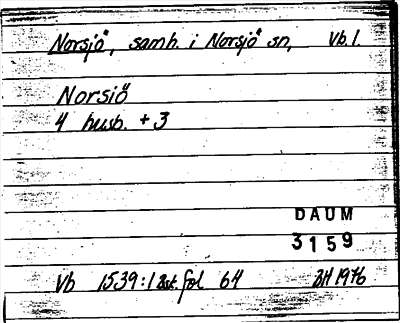 Norsjö, samh. i Norsjö sn, Vb. l.
Norsiö
4 husb. + 3
DAUM
3159
Vb 1539:1 Bst. fol 64 BH 1976